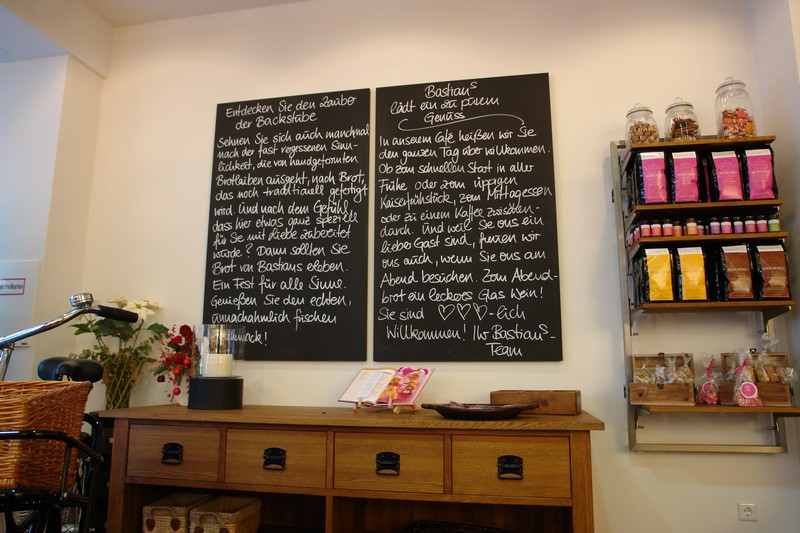 Entdecken Sie den Zauber
der Backstube
Sehnen Sie sich auch manchmal
nach der fast vergessenen Sinn-
lichkeit, die von handgeformten
Brotlaiben ausgeht, nach Brot,
das noch traditionell gefertigt
wird. Und nach dem Gefühl,
dass hier etwas ganz speziell
für Sie mit Liebe zubereitet
wurde? Dann sollten Sie
Brot von Bastians erleben.
Ein Fest für alle Sinne.
Genießen Sie den echten,
unnachahmlich frischen
schmack!
Bastians
lädt ein zu purem
Genuss
In unserem Café heißen wir Sie
den ganzen Tag über willkommen.
Ob zum schnellen Start in aller
Frühe oder zum üppigen
Kaiserfrühstück, zum Mittagessen
oder zu einem Kaffee zwischen-
durch. Und weil Sie uns ein
lieber Gast sind, freuen wir
uns auch, wenn Sie uns am
Abend besuchen. Zum Abend-
brot ein leckeres Glas Wein!
Sie sind ♡♡♡-lich
Willkommen! Ihr Bastians-
Team